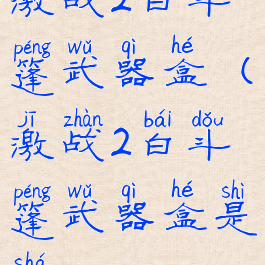 激战2白斗
péng wǔ qì hé
篷武器盒（
jī zhàn bái dǒu
激战2白斗
péng wǔ qì hé shì
篷武器盒是
shá